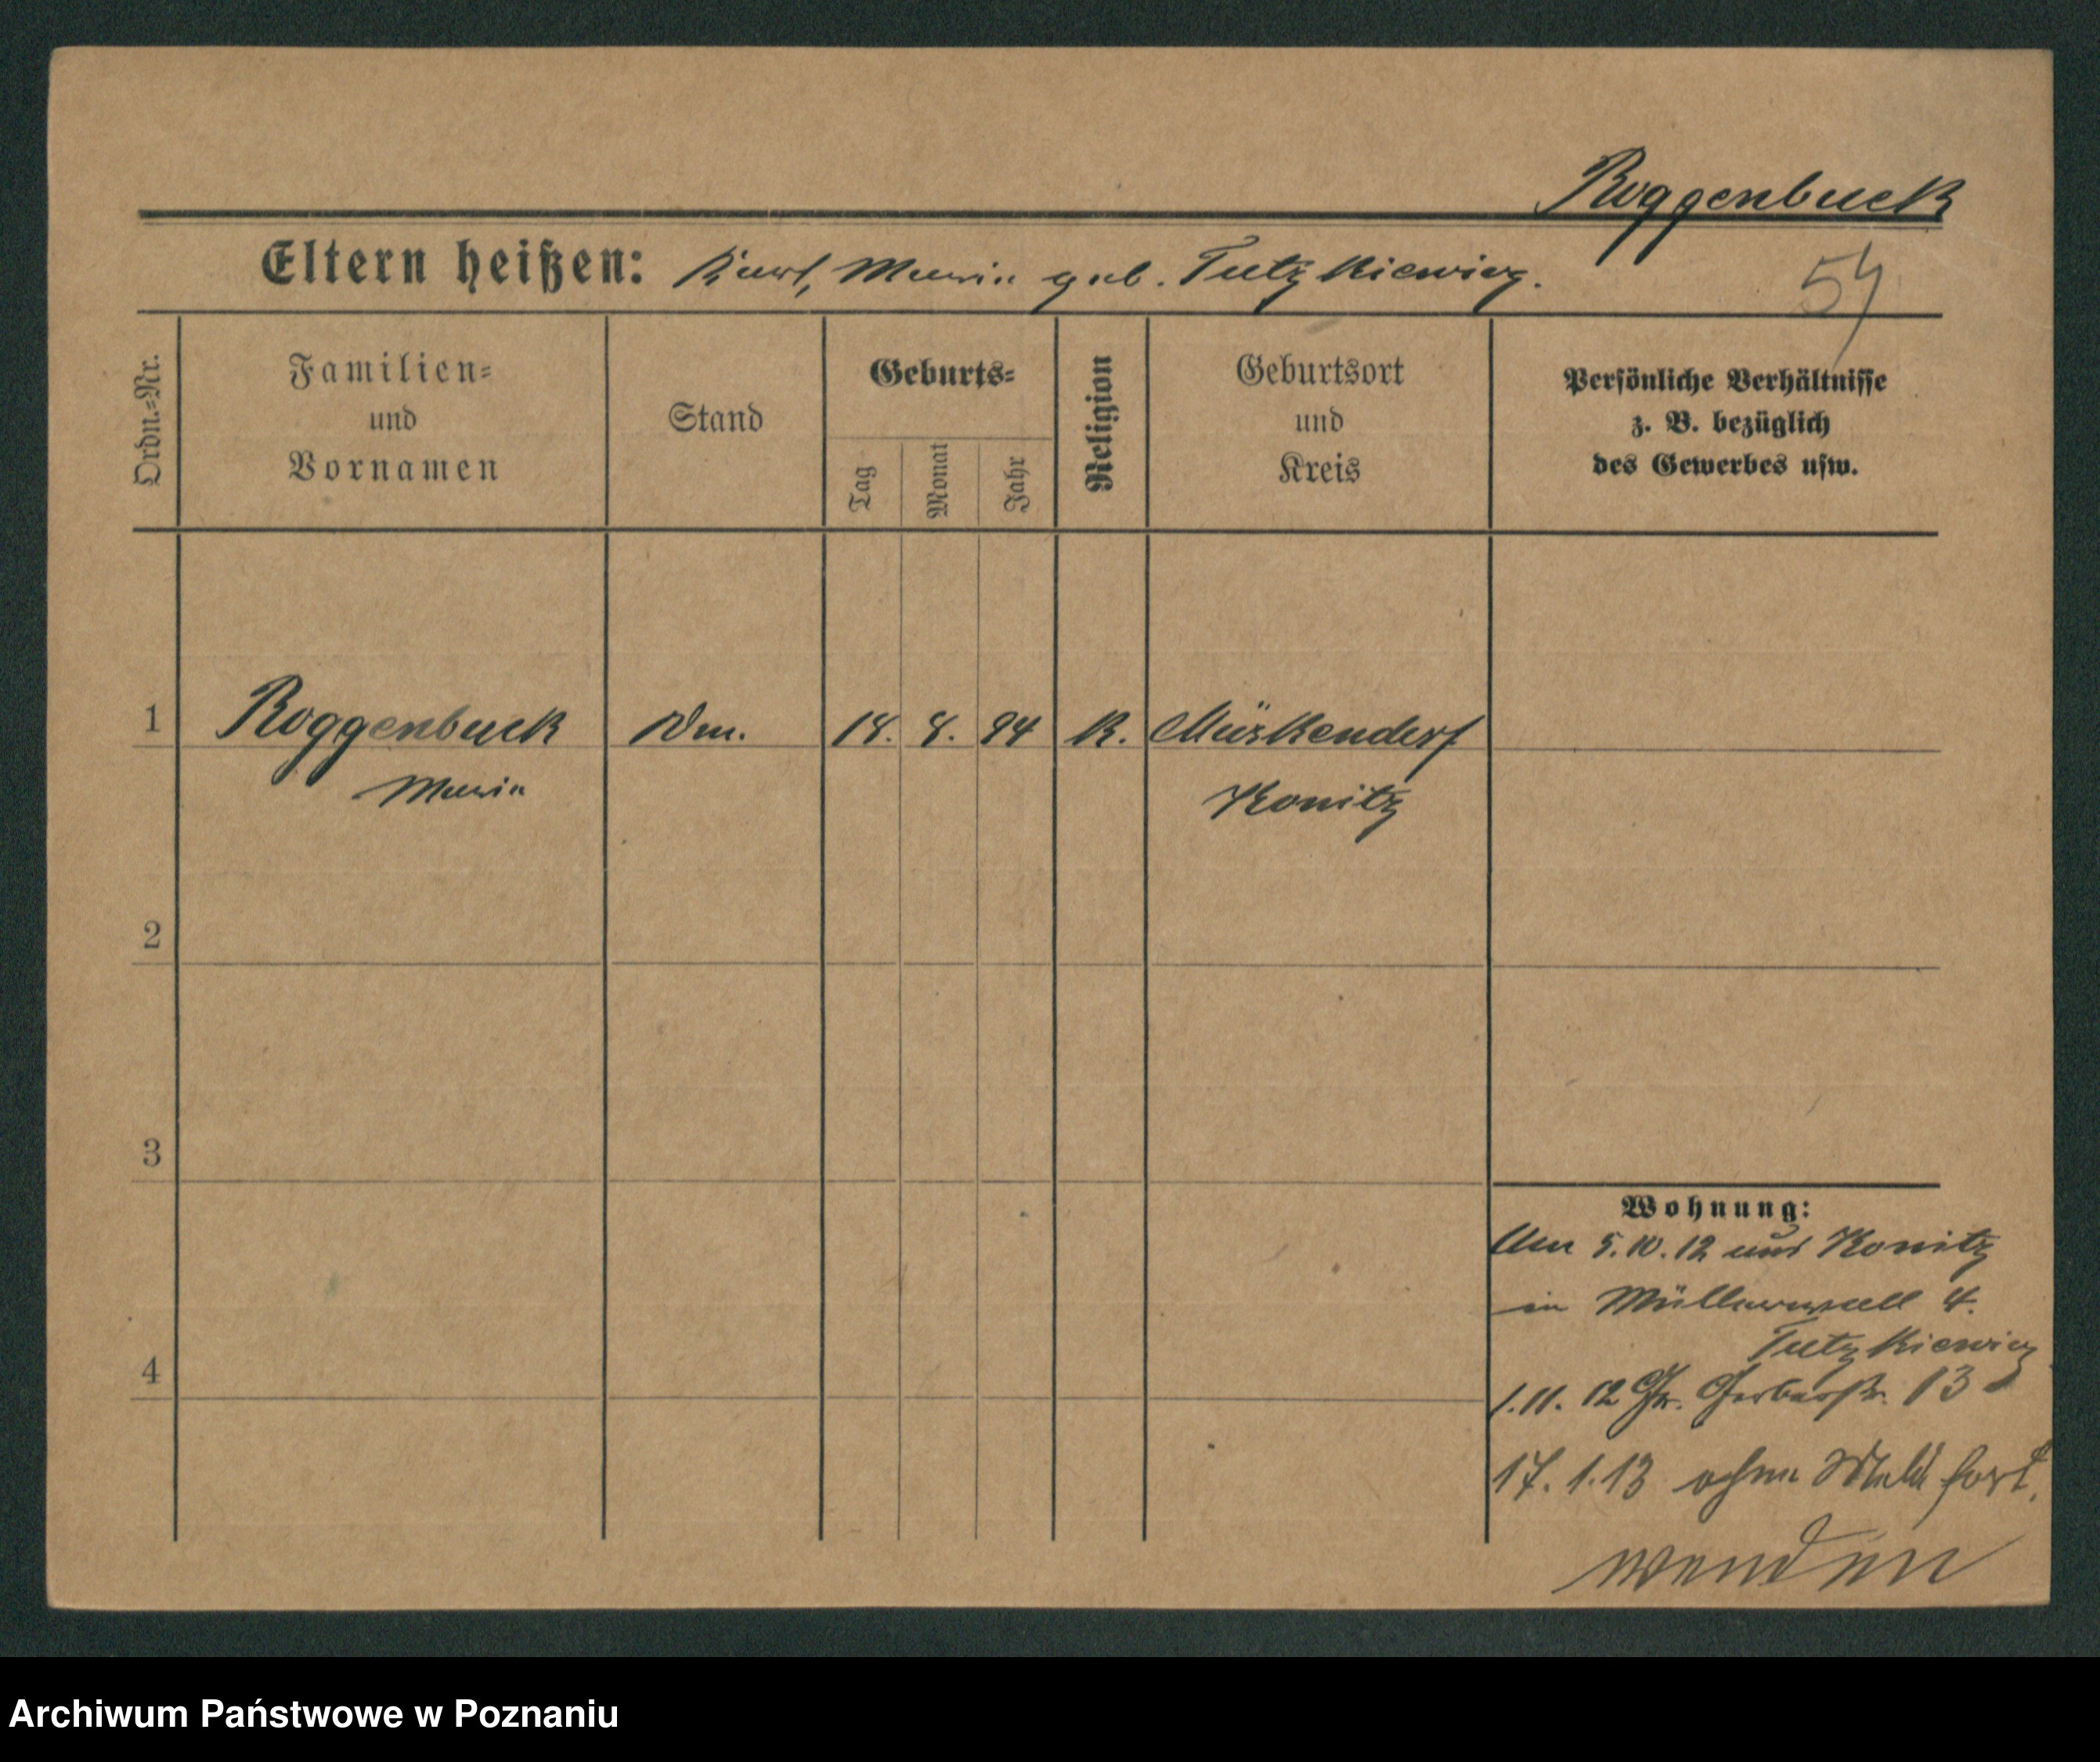 Roggenbuck
Eltern heißen: Karl, Maria geb. Tutzkiewicz.
54
Ordn.=Nr.
Familien=
und
Vornamen
Stand
Geburts=
Tag
Monat
Jahr
Religion
Geburtsort
und
Kreis
Persönliche Verhältnisse
z. B. bezüglich
des Gewerbes usw.
1 Roggenbuck 18. 8. 94 K. Müskendorf
Maria Konitz
2
3
Wohnung:
Am 5.10.12 aus Konitz
in Müllerwall 4.
Tutzkiewicz
4
1.11.12 Gr. Gerberstr. 13
17.1.13 ohne Meld fort.
wenden
Archiwum Państwowe w Poznaniu